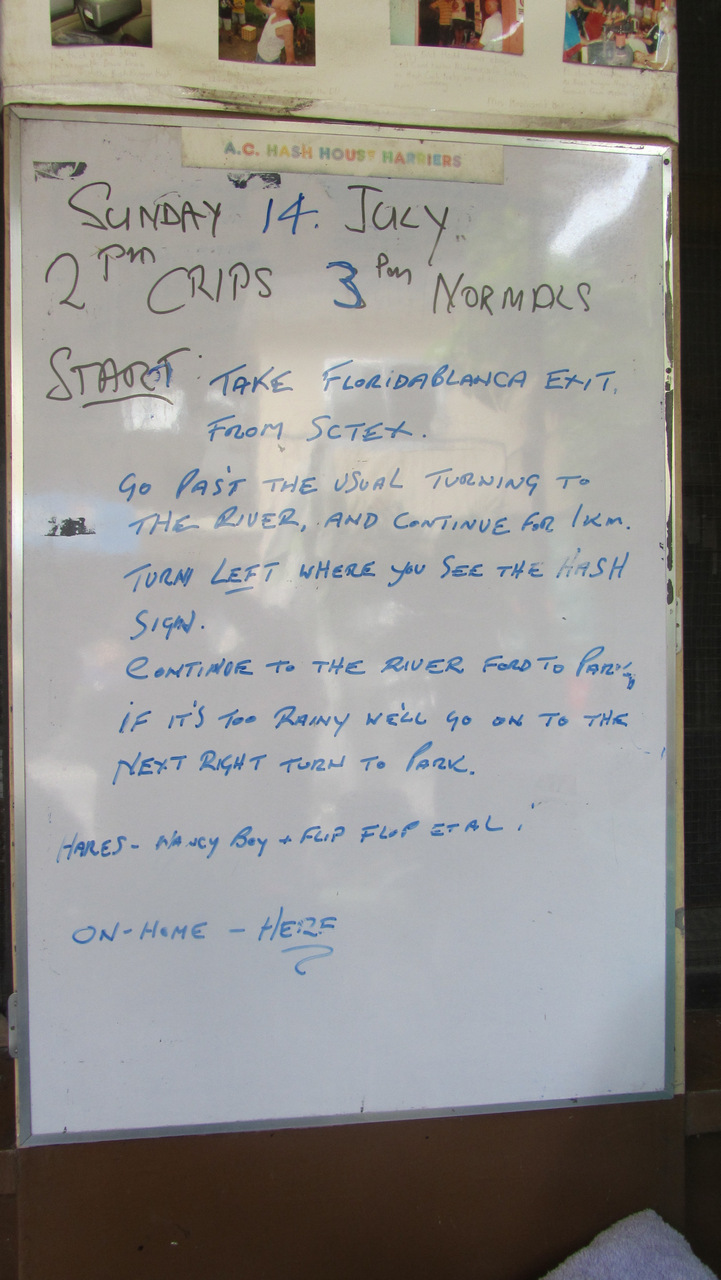 A.C. HASH HOUSE HARRIERS
SUNDAY 14. JULY
2 PM CRIPS 3 PM NORMALS
START: TAKE FLORIDABLANCA EXIT.
FROM SCTEX.
GO PAST THE USUAL TURNING TO
THE RIVER, AND CONTINUE FOR 1KM.
TURN LEFT WHERE YOU SEE THE HASH
SIGN.
CONTINUE TO THE RIVER FORD TO PARK,
IF IT'S TOO RAINY WE'LL GO ON TO THE
NEXT RIGHT TURN TO PARK.
HARES - NANCY BOY + FLIP FLOP ET AL !
ON-HOME - HERE